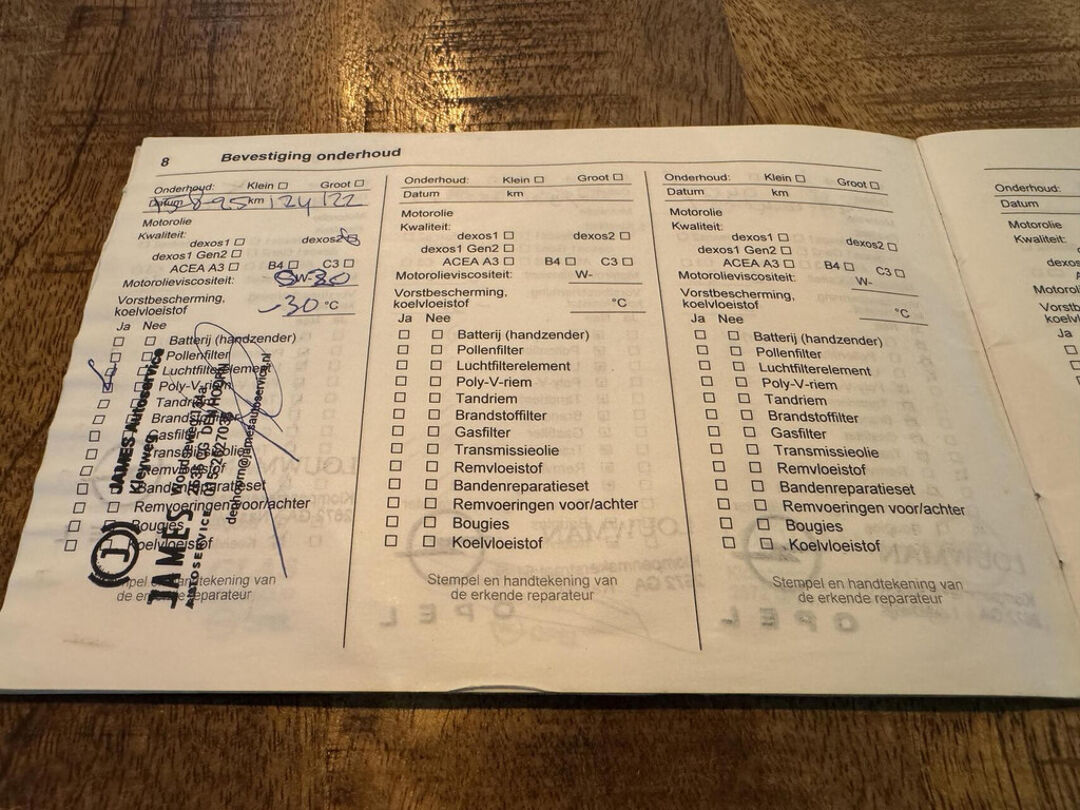 8 Bevestiging onderhoud
Onderhoud: Klein Groot
Datum km 124 122
Motorolie
Kwaliteit:
dexos1 dexos2
dexos1 Gen2
ACEA A3 B4 C3
Motorolieviscositeit: W-30
Vorstbescherming,
koelvloeistof -30 °C
Ja Nee
Batterij (handzender)
Pollenfilter
Luchtfilterelement
Poly-V-riem
Tandriem
Brandstoffilter
Gasfilter
Transmissieolie
Remvloeistof
Bandenreparatieset
Remvoeringen voor/achter
Bougies
Koelvloeistof
Stempel en handtekening van
de erkende reparateur
JAMES Autoservice
Kleyweg
JAMES
AUTOSERVICE
DEN HOORN
denhoorn@jamesautoservice.nl
Onderhoud: Klein Groot
Datum km
Motorolie
Kwaliteit:
dexos1 dexos2
dexos1 Gen2
ACEA A3 B4 C3
Motorolieviscositeit: W-
Vorstbescherming,
koelvloeistof °C
Ja Nee
Batterij (handzender)
Pollenfilter
Luchtfilterelement
Poly-V-riem
Tandriem
Brandstoffilter
Gasfilter
Transmissieolie
Remvloeistof
Bandenreparatieset
Remvoeringen voor/achter
Bougies
Koelvloeistof
Stempel en handtekening van
de erkende reparateur
Onderhoud: Klein Groot
Datum km
Motorolie
Kwaliteit:
dexos1 dexos2
dexos1 Gen2
ACEA A3 B4 C3
Motorolieviscositeit: W-
Vorstbescherming,
koelvloeistof °C
Ja Nee
Batterij (handzender)
Pollenfilter
Luchtfilterelement
Poly-V-riem
Tandriem
Brandstoffilter
Gasfilter
Transmissieolie
Remvloeistof
Bandenreparatieset
Remvoeringen voor/achter
Bougies
Koelvloeistof
Stempel en handtekening van
de erkende reparateur
Onderhoud:
Datum
Motorolie
Kwaliteit:
Ja